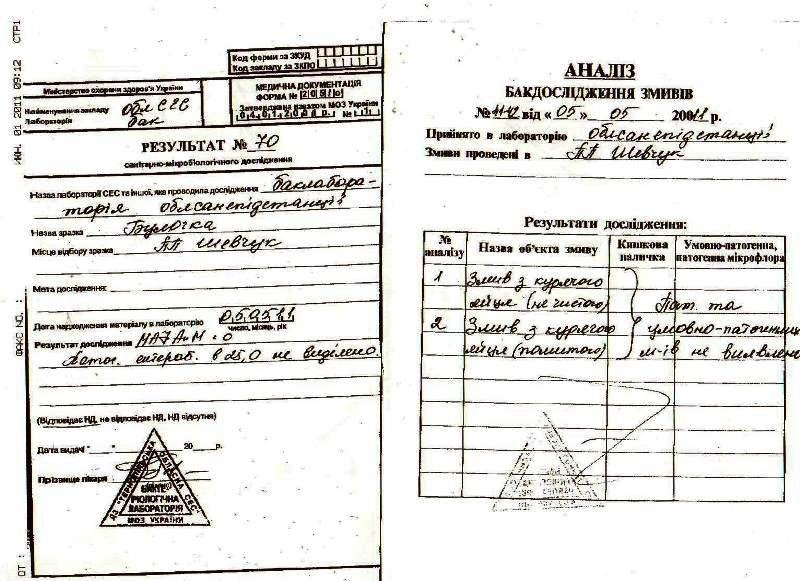 ИЮН. 01 2011 09:12 СТР1
ФАКС NO. :
ОТ :
Код форми за ЗКУД
Код закладу за ЗКПО
Міністерство охорони здоров'я України
Найменування закладу облСЕС
Лабораторія бак
МЕДИЧНА ДОКУМЕНТАЦІЯ
ФОРМА № 205/о
Затверджена наказом МОЗ України
04.01.2001р. № 1
РЕЗУЛЬТАТ № 70
санітарно-мікробіологічного дослідження
Назва лабораторії СЕС та іншої, яка проводила дослідження баклабора-
торія облсанепідстанції
Назва зразка Булочка
Місце відбору зразка ПП Шевчук
Мета дослідження:
Дата надходження матеріалу в лабораторію 050511
число, місяць, рік
Результат дослідження МАФАнМ - 0
Патог. ентероб. в 25,0 не виділено.
(Відповідає НД, не відповідає НД, НД відсутня)
Дата видачі " " 20 р.
Прізвище лікаря
ДЗ "ТЕРНОПІЛЬСЬКА ОБЛАСНА СЕС"
БАКТЕ-
РІОЛОГІЧНА
ЛАБОРАТОРІЯ
МОЗ УКРАЇНИ
АНАЛІЗ
БАКДОСЛІДЖЕННЯ ЗМИВІВ
№ 11-12 від « 05 » 05 2011 р.
Прийнято в лабораторію облсанепідстанції
Змиви проведені в ПП Шевчук
Результати дослідження:
№ аналізу Назва об'єкта змиву Кишкова паличка Умовно-патогенна, патогенна мікрофлора
1 Змив з курячого
яйця (не чистого) Пат. та
2 Змив з курячого умовно-патогенних
яйця (помитого) м-ів не виявлено